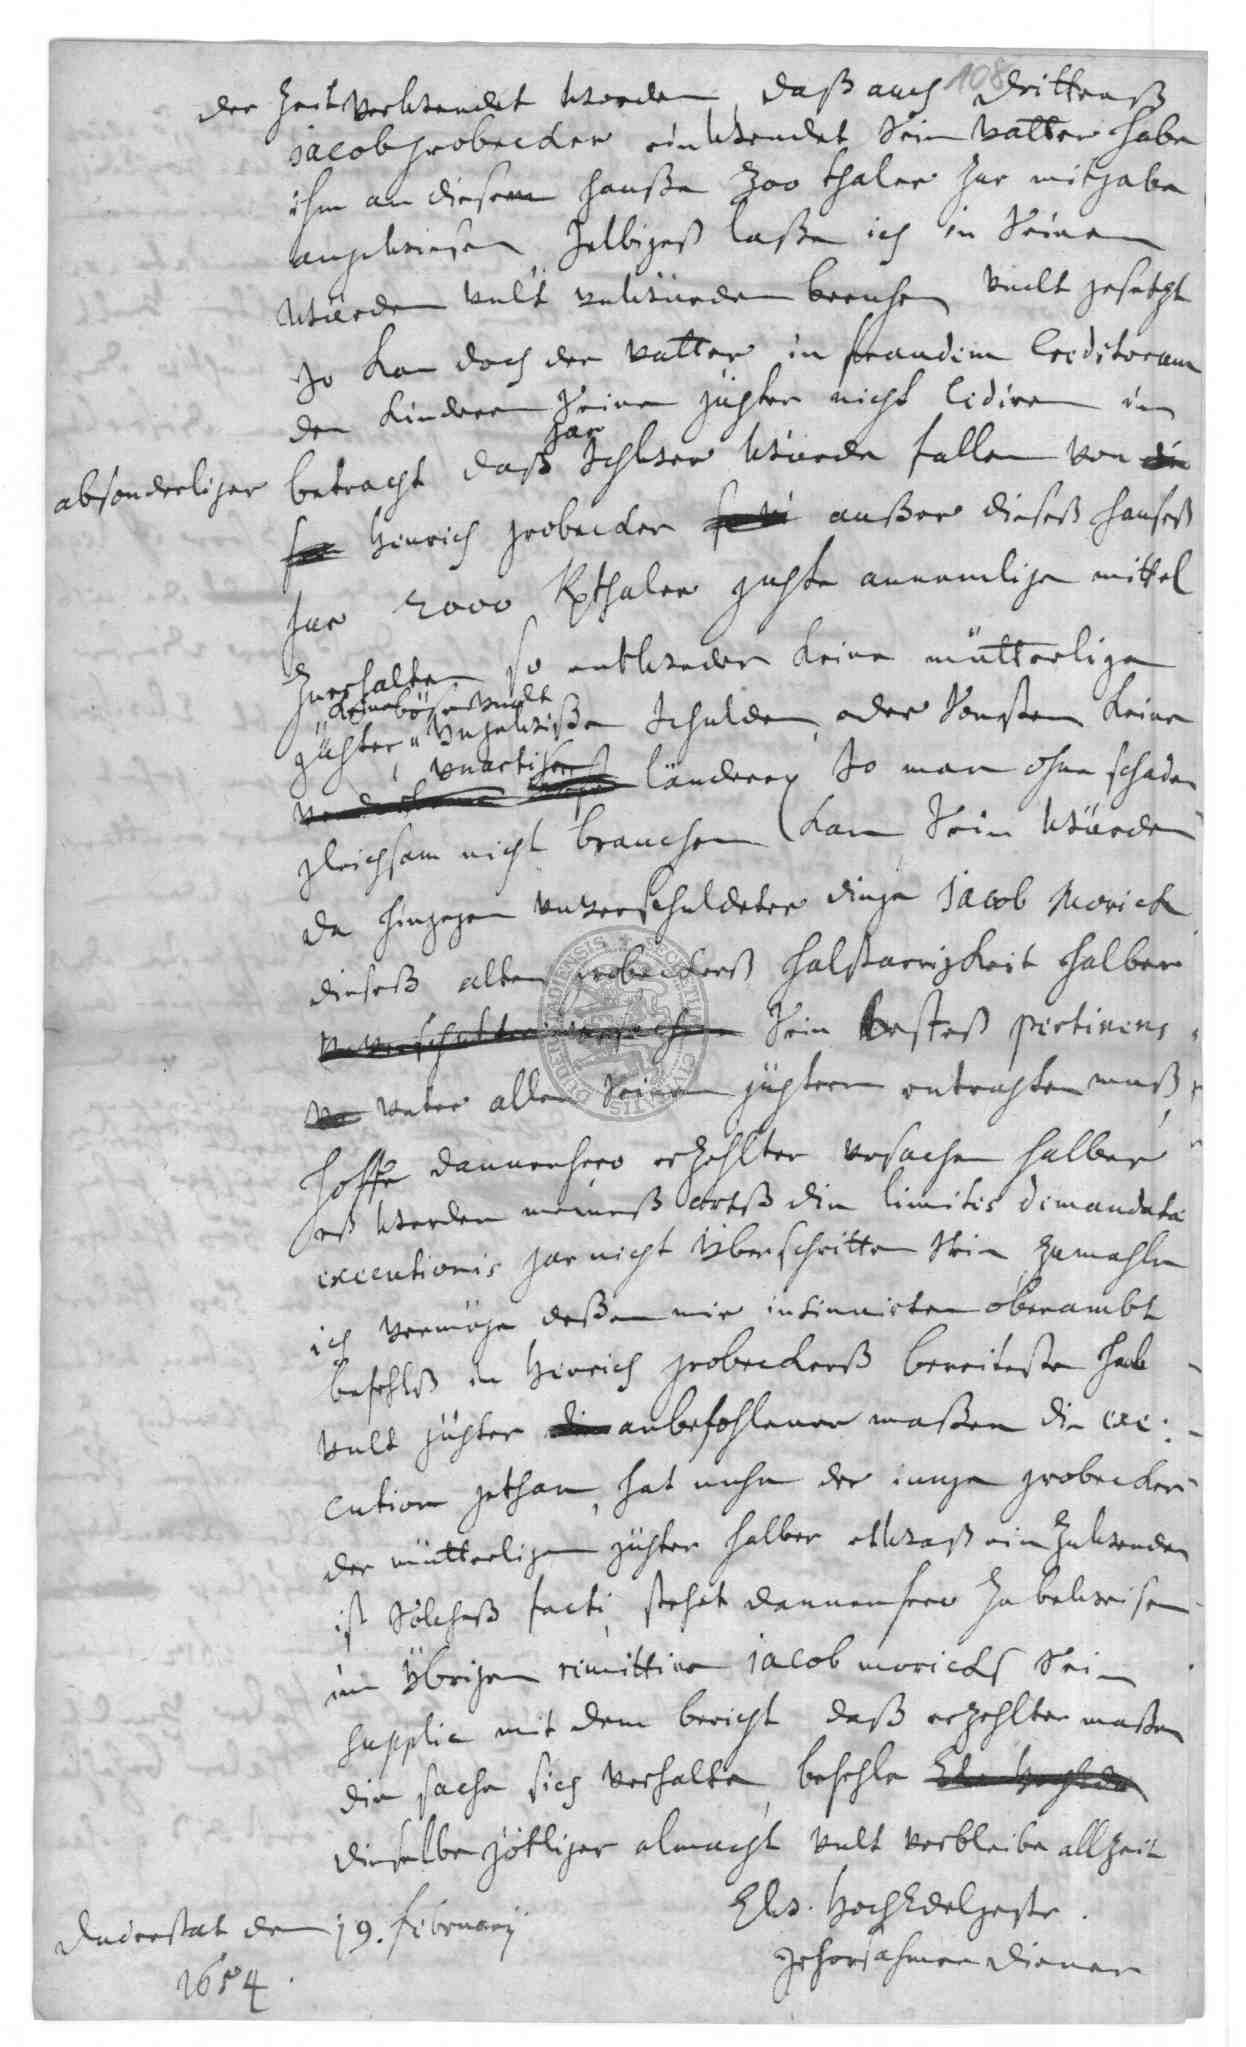 108
der Zeit verwendet worden, daß auch drittenß
Jacob grobecker einwendet sein vatter habe
ihm an diesem hauße 200 thaler zur mitgabe
angewiesen, selbigeß laße ich in seinen
würden undt unwürden beruhen, undt gesetzt
so kan doch der vatter in fraudem Creditorum
den kindern seine gühter nicht cediren in
betracht daß gar schwer würde fallen von
absonderliger
Hinrich grobecker außer dieseß haußeß
für 2000 Rthaler guhte annemlige mittel
zuerhalten so entweder keine mütterlige
gühter, keine böse undt
ungewißen schulden, oder sonsten keine
unartige länderey so man ohne schaden
gleichsam nicht brauchen kan sein würden
da hingegen unverschuldeter dinge Jacob Morick
dieseß alten grobeckerß halßtarrigkeit halber
sein besteß pertinens
unter allen seinen gühtern entrahten muß,
hoffe dannenhero erzehlter ursachen halber
eß werden meineß orteß die limites demandatae
executionis gar nicht überschritten sein, zumahln
ich vermöge deßen mir insinuirten oberambt
befehlß in Hinrich grobeckerß bereiteste hab
undt gühter anbefohlener maßen die exe-
cution gethan, hat nuhn der iunge grobecker
der mütterligen gühter halber etwaß einzuwenden
ist solcheß facti, stehet dannenhero zu beweisen
im übrigen remittire Jacob moricks sein
supplic mit dem bericht daß erzehlter maßen
die sache sich verhalte, befehle
dieselbe götliger almacht undt verbleibe allzeit
Ew. HochEdelgestr.
gehorsahmer diener
Duderstat den 19. february
1654.